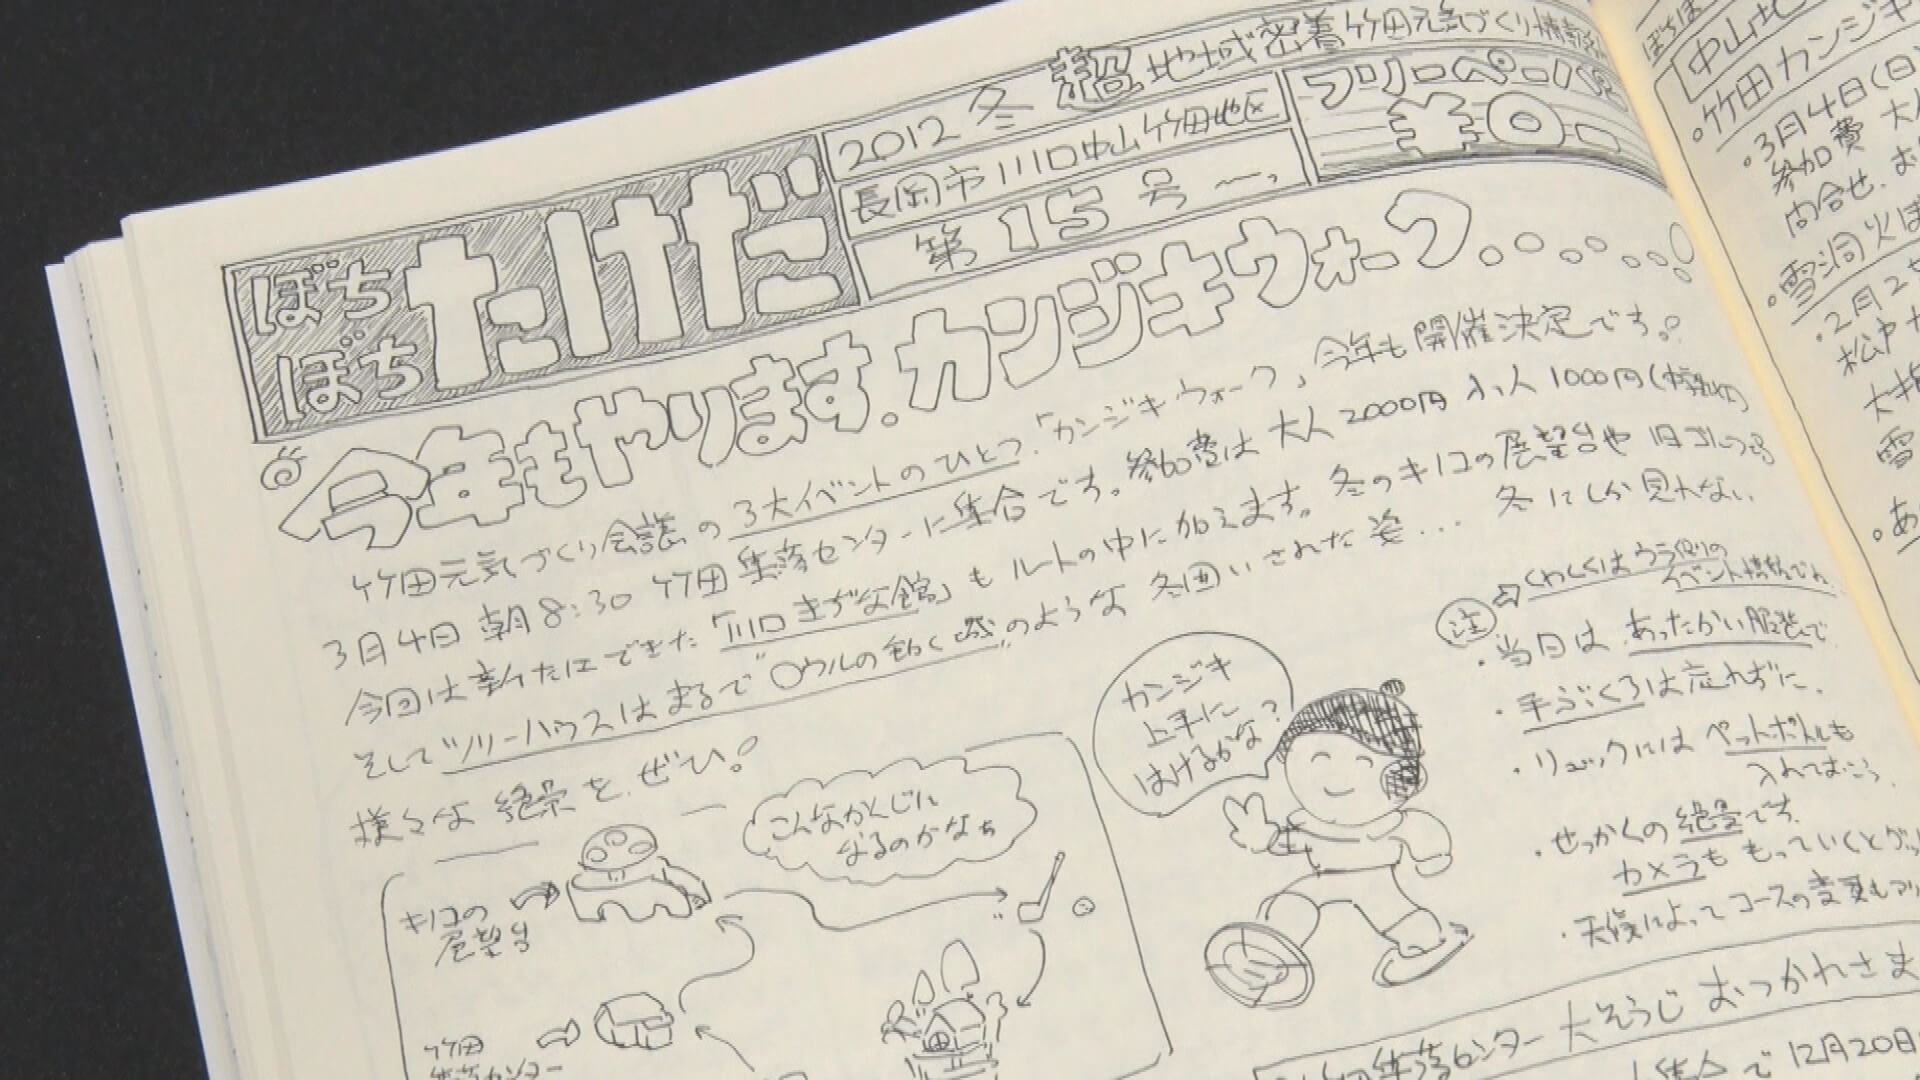 ぼち
ぼち
たけだ
2012 冬 超地域密着竹田元気づくり情報
長岡市川口中山竹田地区
第15号〜
フリーペーパー
¥0-
今年もやります。カンジキウォーク・・・
竹田元気づくり会議の3大イベントのひとつ「カンジキウォーク」今年も開催決定です。
3月4日 朝8:30 竹田集落センターに集合です。参加費は 大人2000円 小人1000円
今回は新たにできた「川口きずな館」もルートの中に加えます。冬のキノコの展望台や旧ゴルフ場
そしてツリーハウスはまるで"○ウルの動く城"のような冬囲いされた姿... 冬にしか見れない
様々な絶景を、ぜひ!
くわしくはウラ
イベント情報
注
・当日はあったかい服装で
・手ぶくろは忘れずに。
・リュックにはペットボトルも
入れておこう
・せっかくの絶景です。
カメラももっていくと
・天候によってコースの変更も
カンジキ
上手に
はけるかな?
こんなかんじに
なるのかなぁ
キノコの
展望台
竹田
集落センター
集落センター大そうじ おつかれさま
12月20日
中山
・竹田カンジキ
・3月4日(日
参加費 大人
問合せ.
・雪洞火
・2月2
松戸
雪